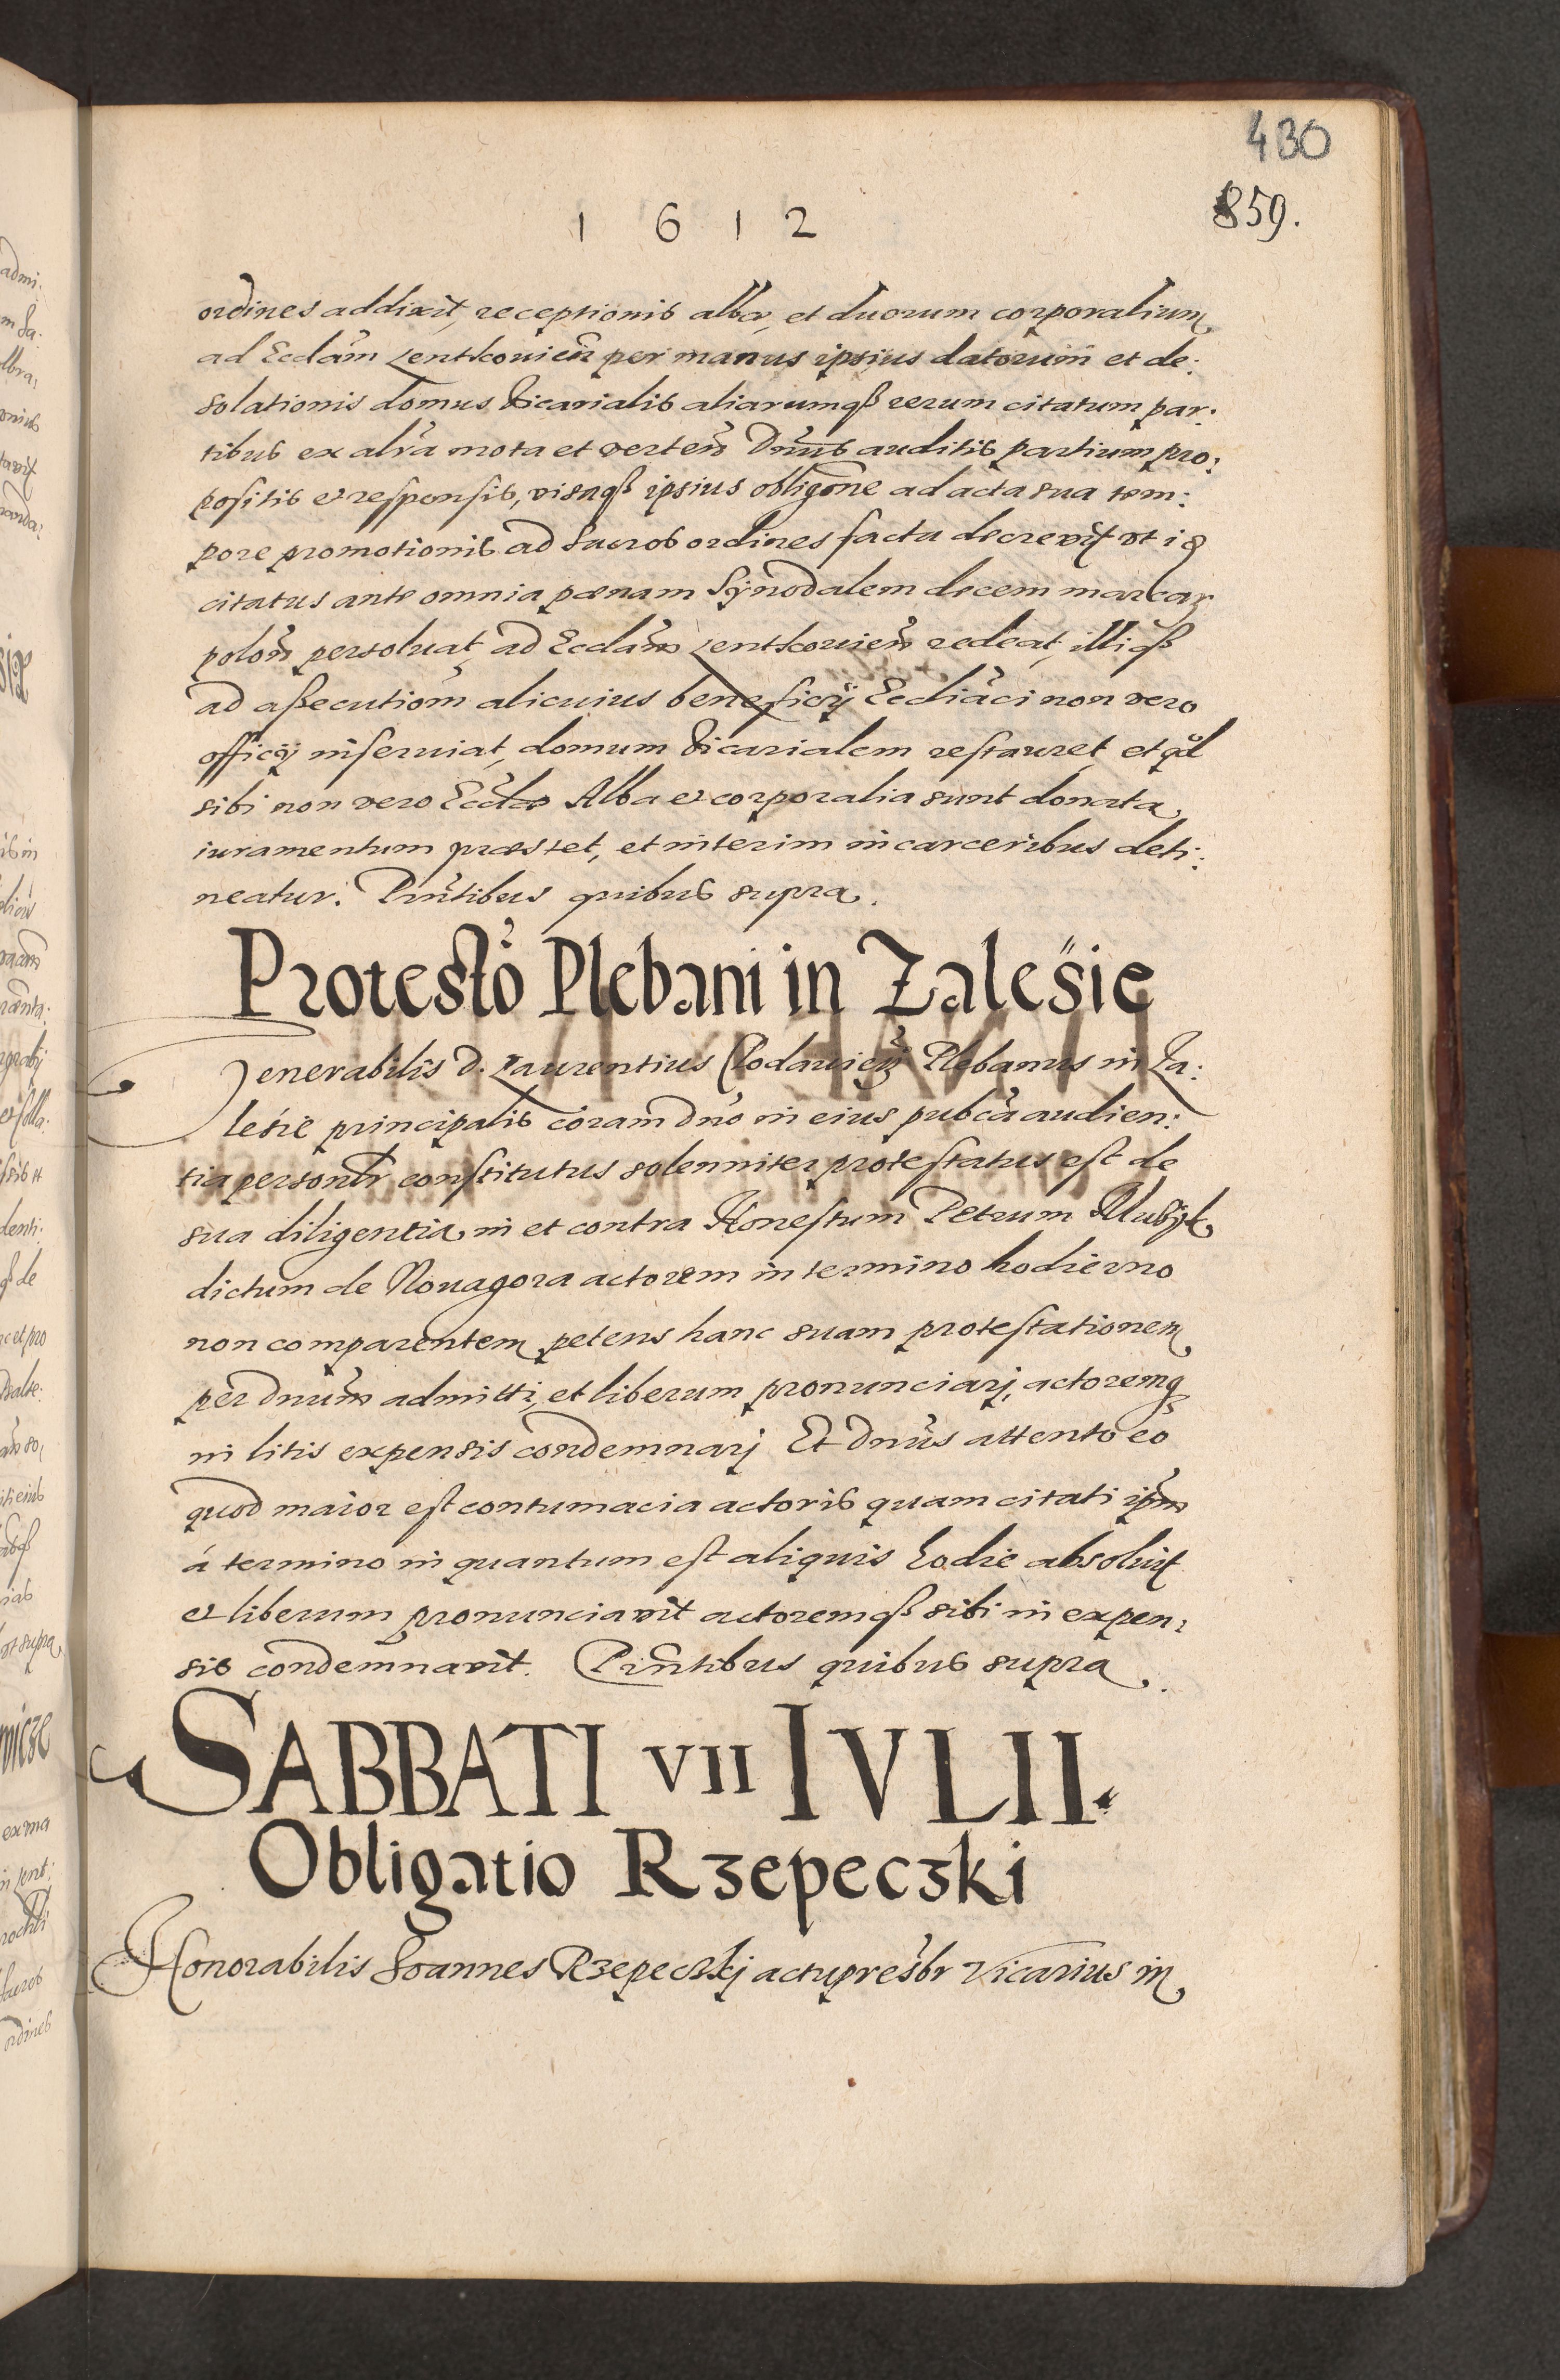 430
859.
1 6 1 2
ordines addixit, receptionis albæ, et duorum corporalium
ad Ecclam Lentkouien̄ per manus ipsius datorum et de:
solationis domus Vicarialis aliarumqß rerum citatum par:
tibus ex altra mota et verten̄ Dnūs auditis partium pro:
positis et responsis, visaqß ipsius obligōne ad acta sua tem:
pore promotionis ad sacros ordines facta decrevit vt id
citatus ante omnia pænam Synodalem decem marcar
polon̄ persoluat, ad Ecclam̄ Lentkouien̄ redeat, illiqß
ad assecutiom̄ alicuius beneficij Eccliāci non vero
officij inseruiat, domum Vicarialem restauret, et qd
sibi non vero Ecclæ Alba et corporalia sunt donata,
iuramentum præstet, et interim in carceribus deti:
neatur. Pntibus quibus supra.
Protestō Plebani in Zalesie
Venerabilis D. Laurentius Clodawicz Plebanus in Za:
lesie principalis coram dno in eius pubca audien:
tia personlr constitutus solenniter protestatus est de
sua diligentia, in et contra Honestum Petrum
dictum de Nouagora actorem in termino hodierno
non comparentem petens hanc suam protestationem
per dnum admitti, et liberum pronunciarj, actoremq
in litis expensis condemnarj Et Dnus attento eo
quod maior est contumacia actoris quam citati ipm
á termino in quantum est aliquis hodie absoluit
et liberum pronunciavit actoremqß sibi in expen:
sis condemnavit. Pntibus quibus supra.
SABBATI VII IVLII.
Obligatio Rzepeczki
Honorabilis Joannes Rzepeczkj actupresbr Vicarius in